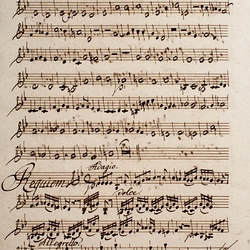 Adagio.
Requiem
dolce
Allegretto.